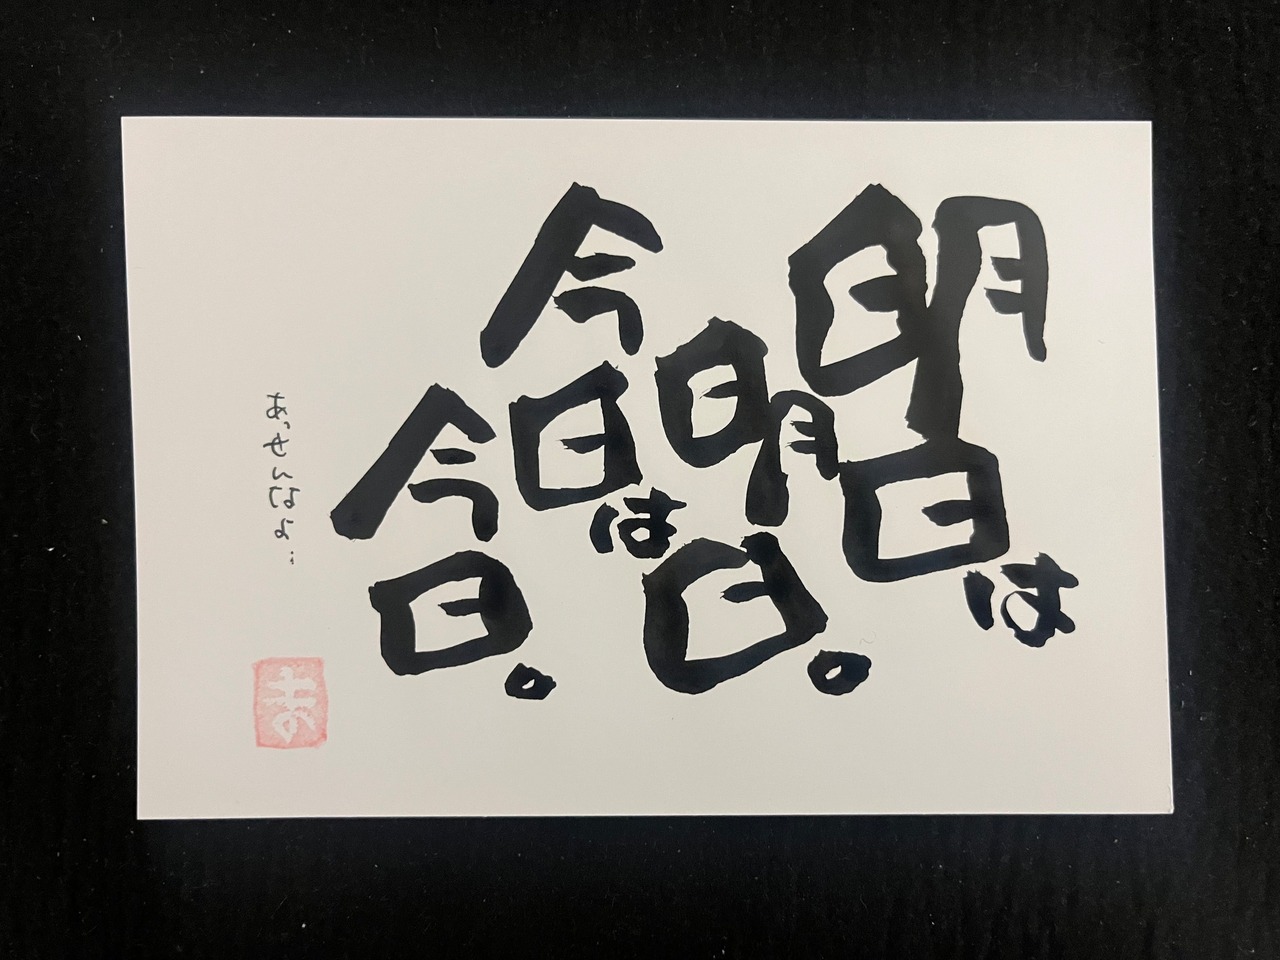 明日は
明日。
今日は
今日。
あっせんなよ…
ま